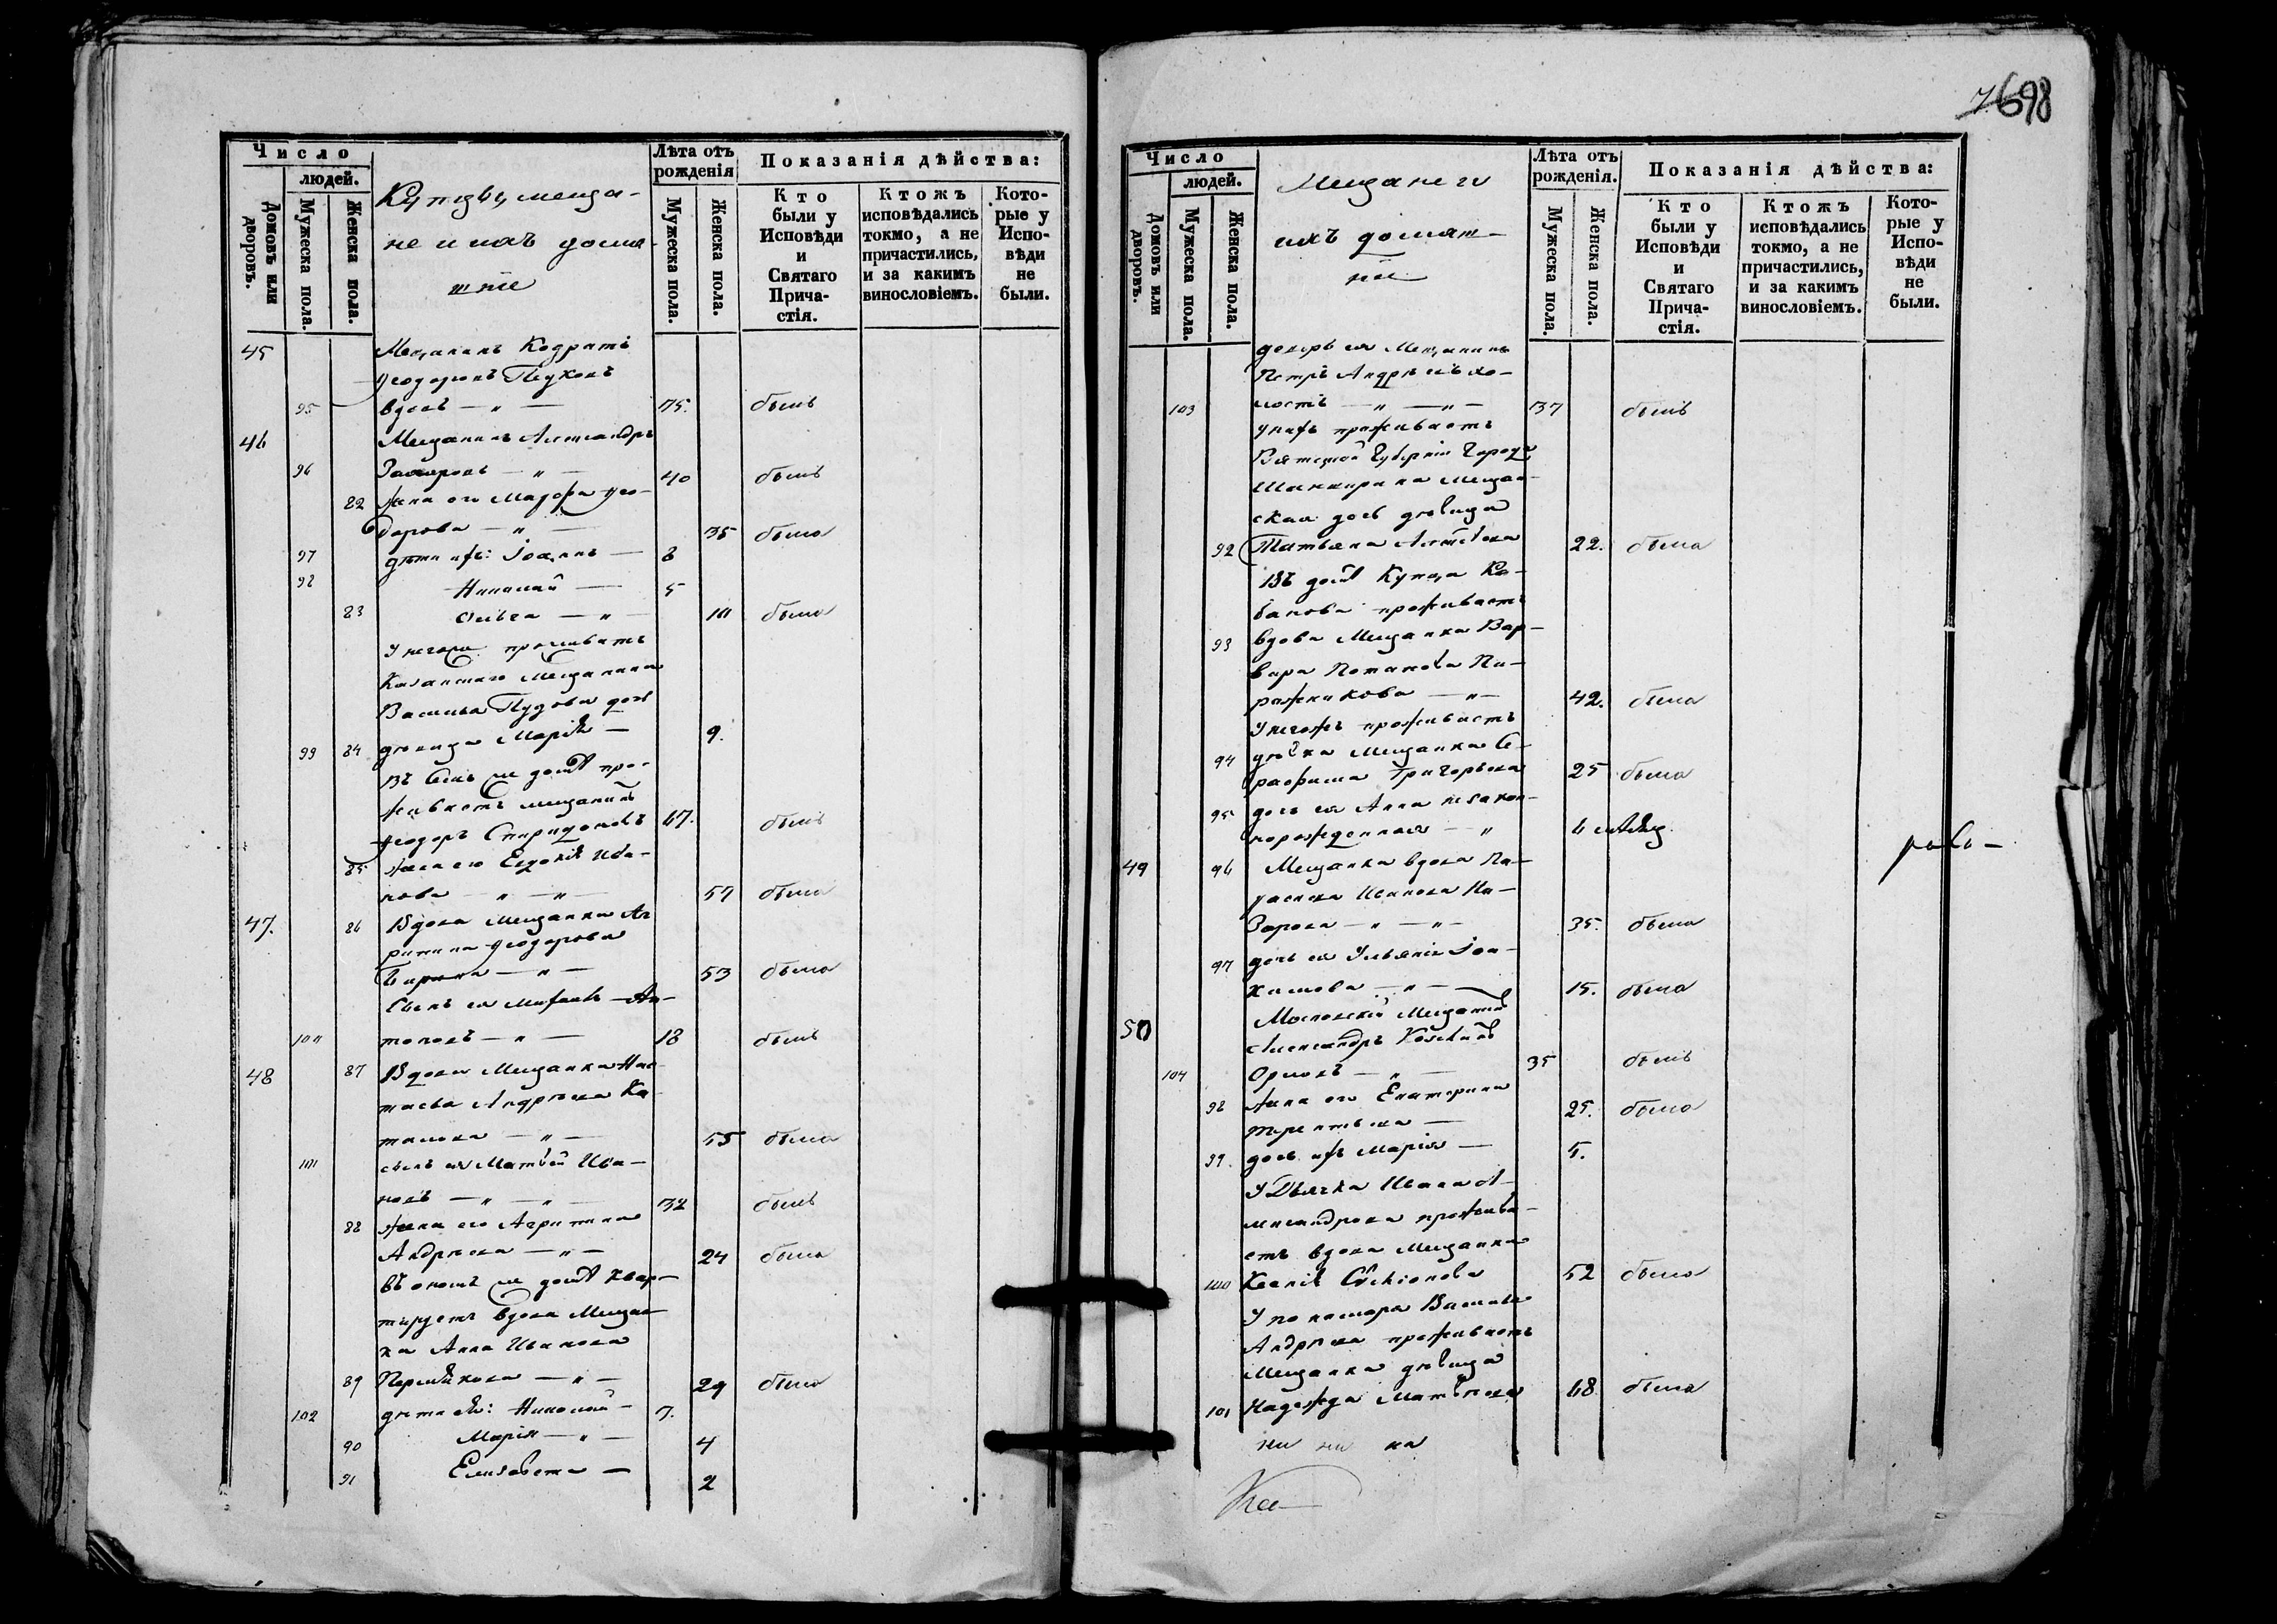 Число
людей.
Домовъ или дворовъ.
Мужеска пола.
Женска пола.
Купцы, меща-
не и ихъ домa-
шніе
Лѣта отъ рожденія
Мужеска пола.
Женска пола.
Показанія дѣйства:
Кто были у Исповѣди и Святаго Прича- стія.
Ктожъ исповѣдались токмо, а не причастились, и за какимъ винословіемъ.
Кото- рые у Испо- вѣди не были.
45 Мещанинъ Кодратъ
Ѳеодоровъ
95 вдовъ — " — 75. былъ
46 Мещанинъ Александръ
96 Захаровъ — " — 40 былъ
82 Жена его Ѳео-
дорова — " — 35 была
97 дѣти ихъ: Іоаннъ — 8
98 Николай — 5
83 Ольга — " — 10 была
У негоже проживаетъ
Казанскаго Мещанина
Василья Пудова дочь
99 84 дѣвица Марія — 9.
Въ семъ же домѣ про-
живаетъ мещанинъ
Ѳеодоръ Спиридоновъ 67. былъ
85 Жена его Евдокія Ива-
нова — " — " — 57 была
47. 86 Вдова Мещанка Аг
рипина Ѳеодорова
— " — 53 была
Сынъ ея Михаилъ Ан-
100 тоновъ — " — 18 былъ
48 87 Вдова Мещанка Нас-
тасья Андреева Ка-
— " — 55 была
101 сынъ ея Матвѣй Ива-
новъ — " — " — 32 былъ
88 Жена его Агрипина
Андреева — " — 24 была
въ ономъ же домѣ квар-
тируетъ вдова Мещан-
ка Анна Иванова
89 Пермякова — " — 29 была
102 дѣти ея: Николай — 7.
90 Марія — " — 4
91 Елизавета — 2
698
Число
людей.
Домовъ или дворовъ.
Мужеска пола.
Женска пола.
Мещане и
ихъ домаш-
ніе
Лѣта отъ рожденія.
Мужеска пола.
Женска пола.
Показанія дѣйства:
Кто были у Исповѣди и Святаго Прича- стія.
Ктожъ исповѣдались токмо, а не причастились, и за какимъ винословіемъ.
Кото- рые у Испо- вѣди не были.
ея Мещанинъ
Петръ Андреевъ хо-
103 лостъ — " — " — 37 былъ
У нихъ проживаетъ
Вятской Губерніи Города
Мещан-
ская дочь дѣвица
92 Татьяна 22. была
Въ домѣ Купца Ка-
банова проживаетъ
93 вдова Мещанка Вар-
вара Потапова Пи-
рожникова — " — 42. была
У негожъ проживаетъ
94 дѣвка Мещанка Се-
рафима Григорьева 25 была
95 дочь ея Анна незакон-
норожденная — " 6
49 96 Мещанка вдова Па-
раскева Иванова На-
зарова — " — " — 35. была
97 дочь ея Ульянія Іоа-
кимова — " — 15. была
50 Московскій Мещанинъ
Александръ
104 Орловъ — " — 35 былъ
98 Жена его Екатерина
Терентьева — 25. была
99. дочь ихъ Марія — 5.
У Дьячка Ивана А-
лександрова прожива-
етъ вдова Мещанка
100 Ксенія 52 была
У пономаря Василья
Андреева проживаетъ
Мещанка дѣвица
101 Надежда Матвѣева 48 была